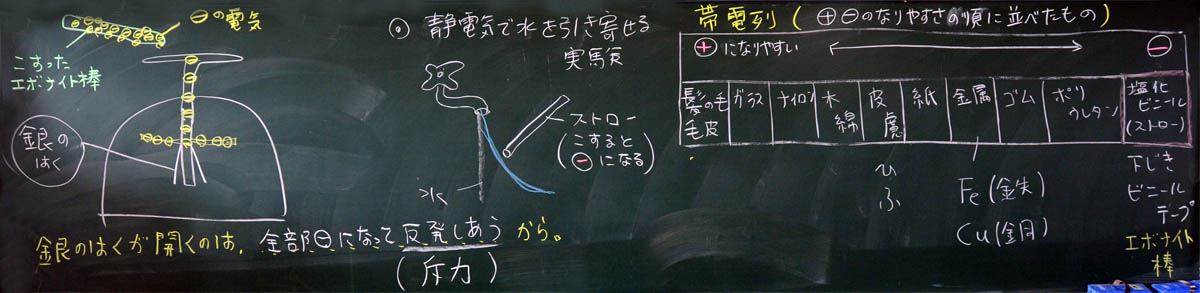 ⊖の電気
こすった
エボナイト棒
銀の
はく
銀のはくが開くのは、全部⊖になって反発しあうから。
(斥力)
◎ 静電気で水を引き寄せる
実験
ストロー
(こすると
⊖になる)
水
帯電列(⊕⊖のなりやすさの順に並べたもの)
⊕になりやすい ⊖
髪の毛
毛皮
ガラス
ナイロン
木綿
皮膚
紙
金属
ゴム
ポリ
ウレタン
塩化
ビニール
(ストロー)
ひ
ふ
Fe(鉄)
Cu(銅)
下じき
ビニール
テープ
エボナイト
棒